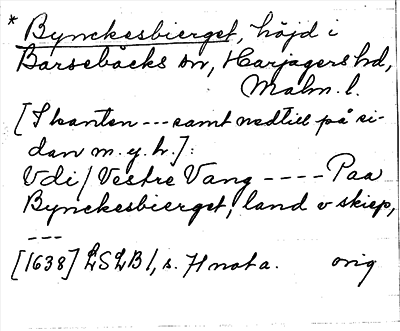 * Bynckesbierget, höjd i
Barsebäcks sn, Harjagers hd,
Malm. l.
[I kanten --- samt nedtill på si-
dan m. y. h.]:
Vdi / Vestre Vang ---- Paa
Bynckesbierget, land v skiep,
---
[1638] LSLB 1, s. 7 not a. orig